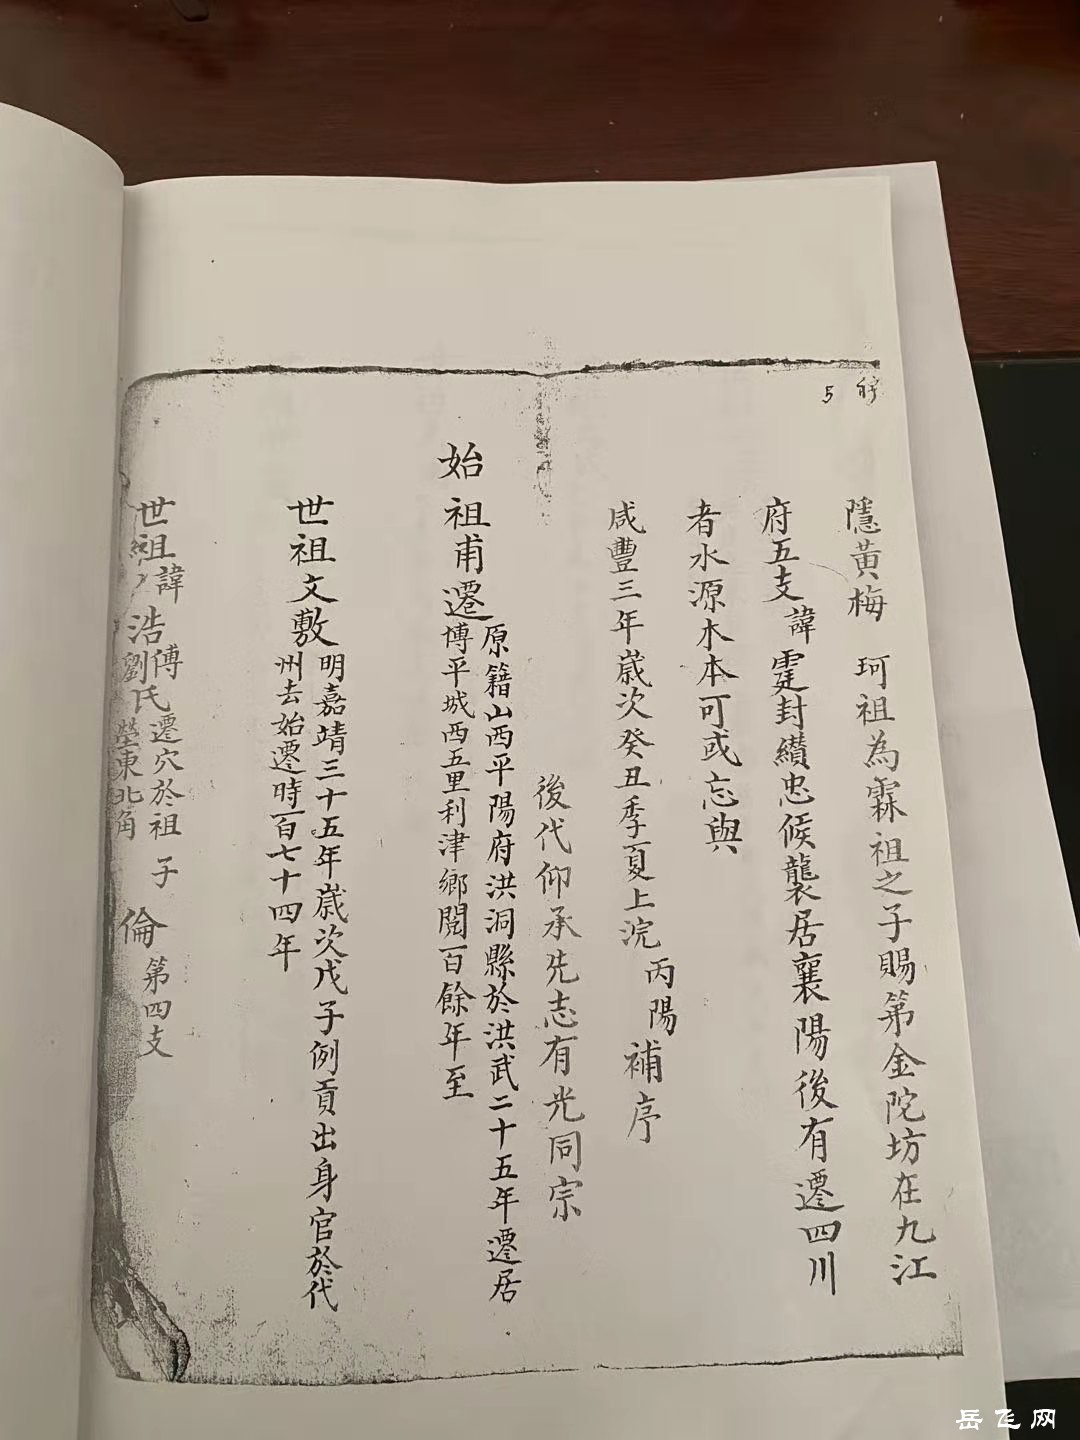 5
隱黃梅 珂祖為霖祖之子賜第金陀坊在九江
府五支諱霆封纘忠候襲居襄陽後有遷四川
者水源木本可或忘與
咸豐三年歲次癸丑季夏上浣丙陽補序
後代仰承先志有光同宗
始祖甫遷
原籍山西平陽府洪洞縣於洪武二十五年遷居
博平城西五里利津鄉閱百餘年至
世祖文敷
明嘉靖三十五年歲次戊子例貢出身官於代
州去始遷時一百七十四年
世祖諱浩
傅氏遷穴於祖
劉氏塋東北角
子倫第四支
岳飞网